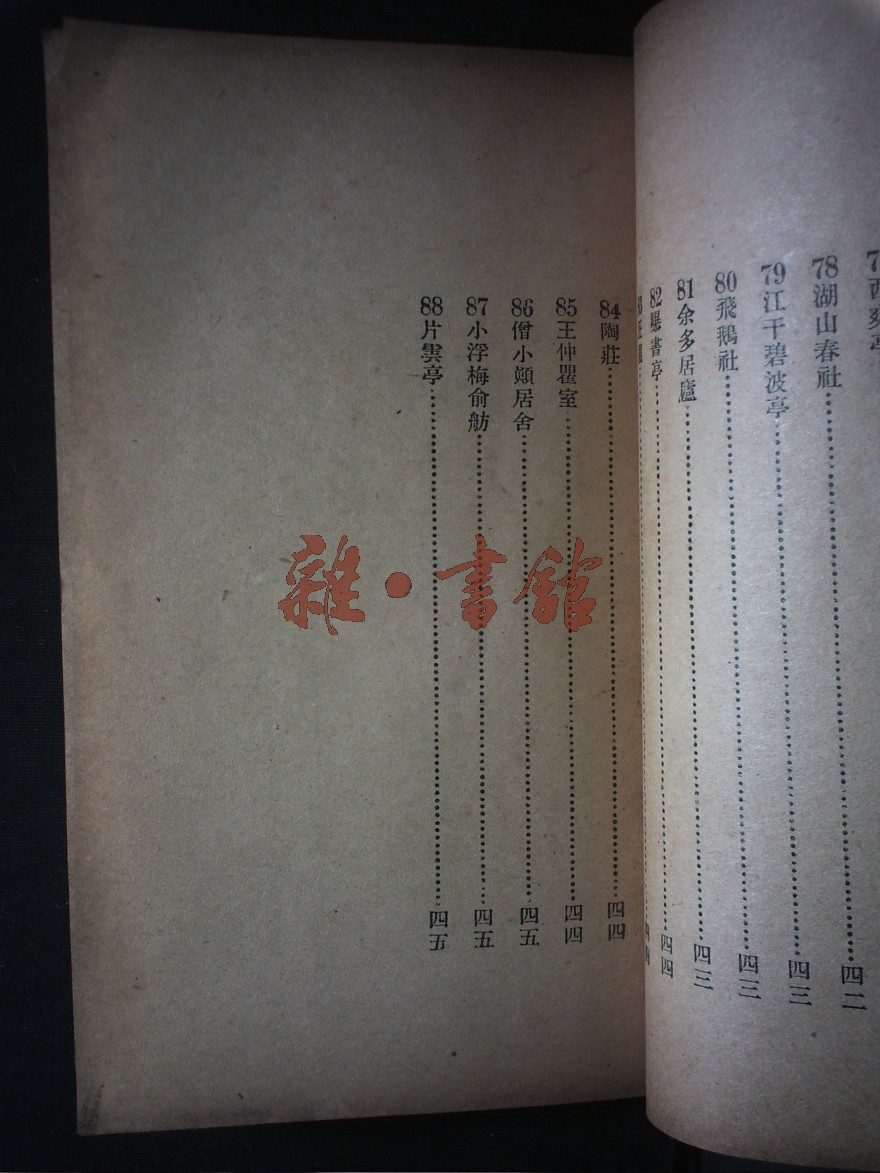 西爽亭
78 湖山春社……四二
79 江干碧波亭……四三
80 飛鵝社……四三
81 余多居廬……四三
82 曝書亭……四四
84 陶莊……四四
85 王仲瞿室……四四
86 僧小顛居舍……四五
87 小浮梅俞舫……四五
88 片雲亭……四五
雜·書館